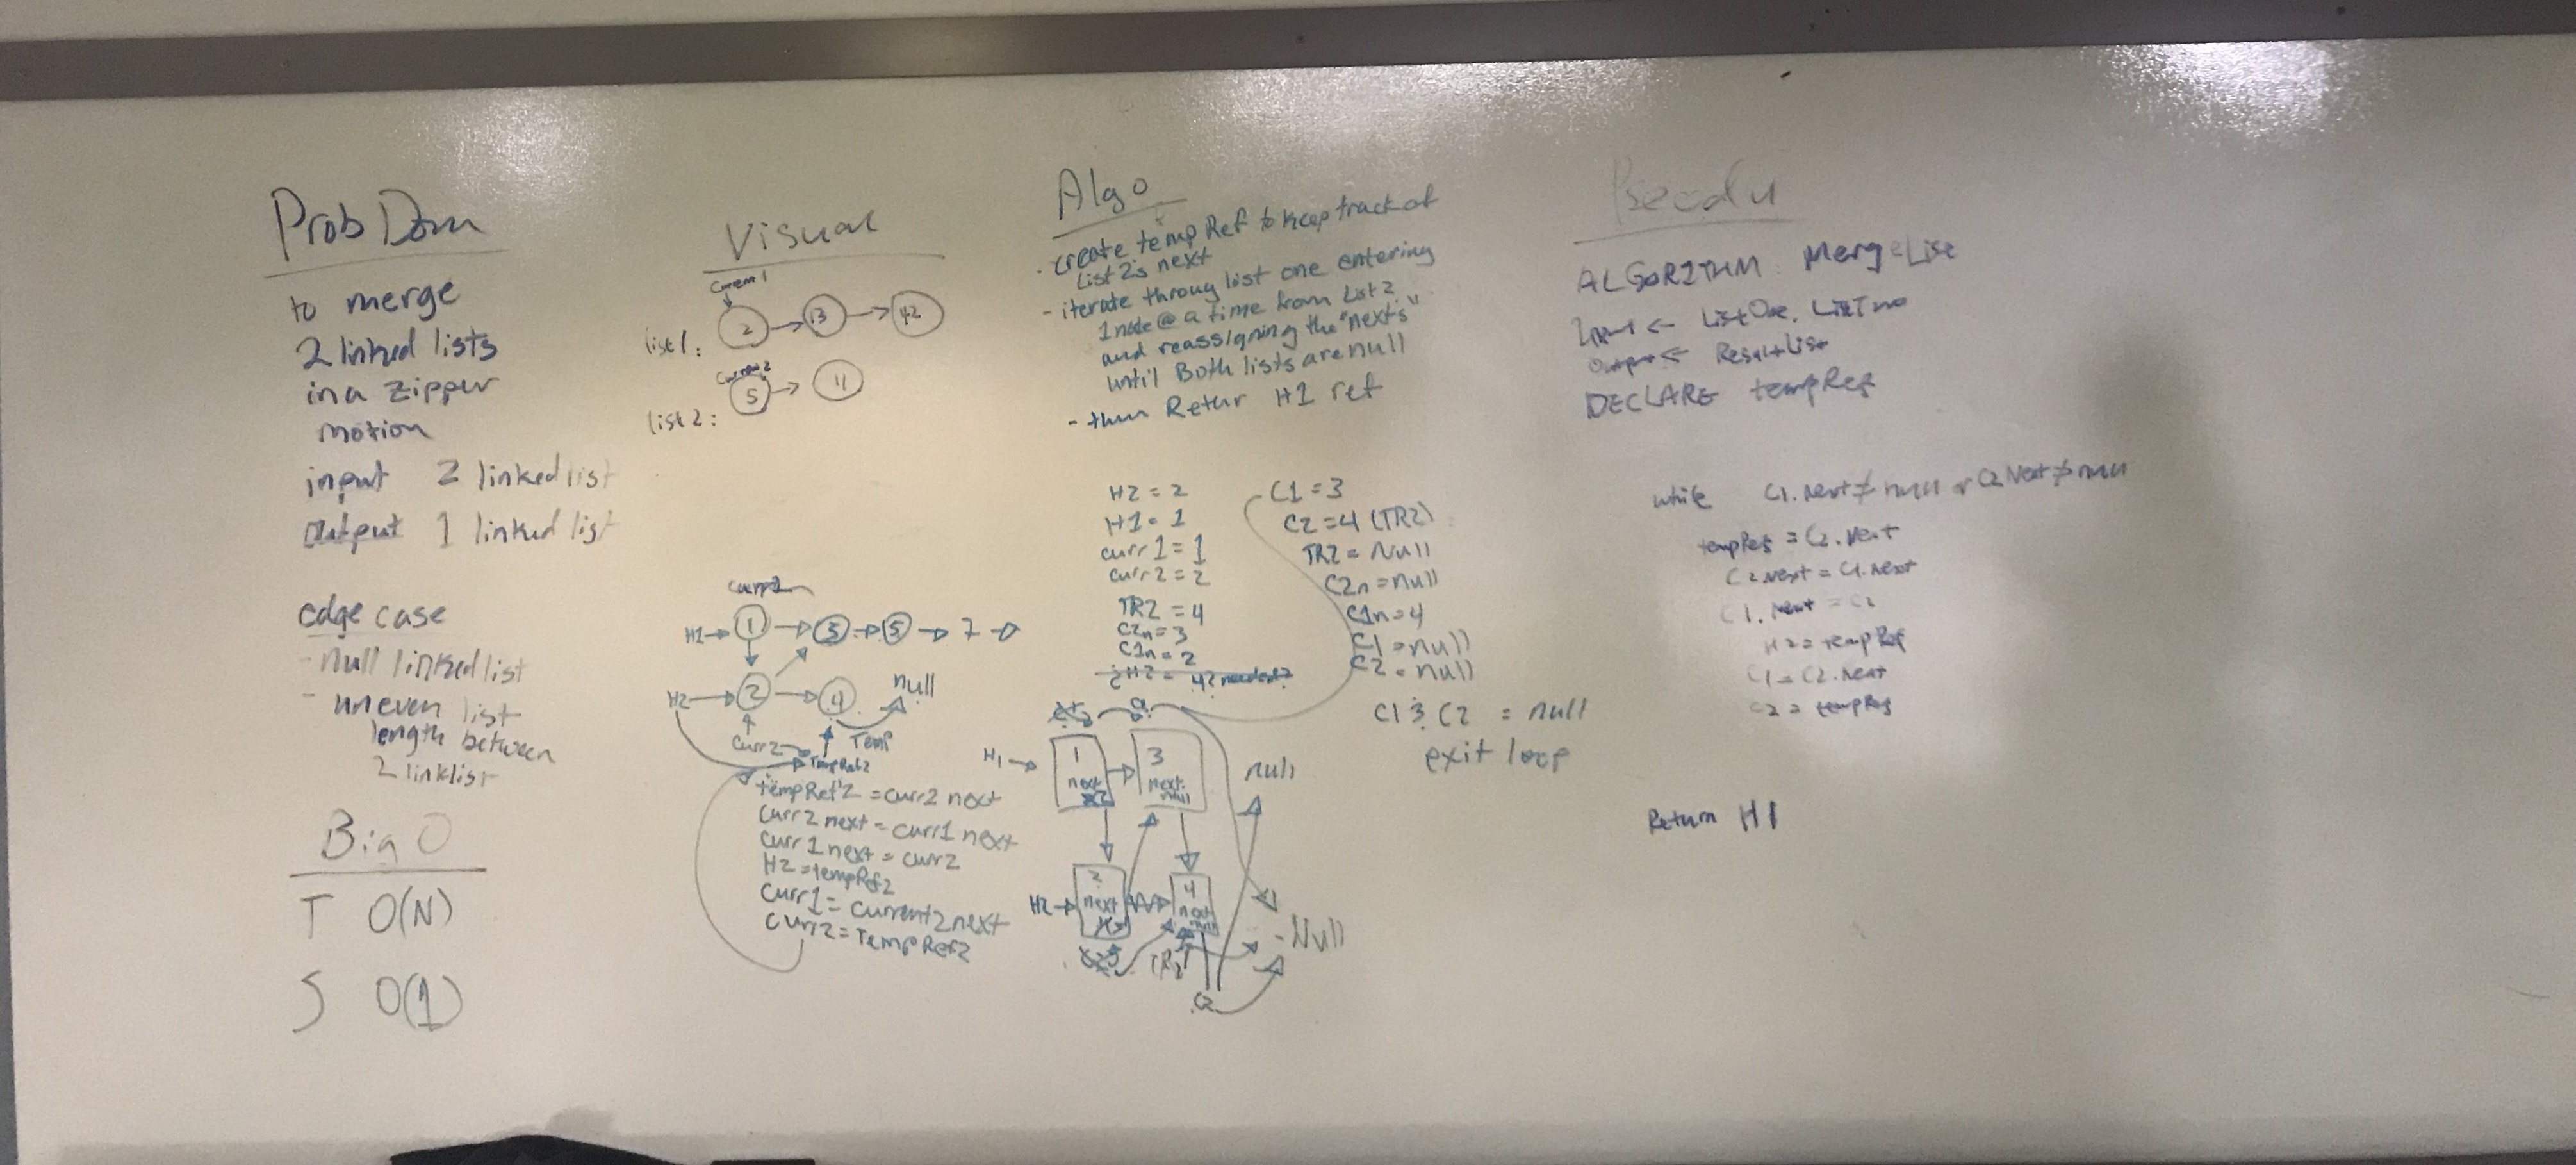 Prob Dom
to merge
2 linked lists
in a zipper
motion
input 2 linked list
output 1 linked list
edge case
- null linked list
- uneven list
length between
2 linklist
Big O
T O(N)
S O(1)
Visual
list 1:
2 → 13 → 42
list 2:
5 → 11
H1 → 1 → 3 → 5 → 7 →
H2 → 2 → 4
null
Curr2
Temp
TempRef2
tempRef2 = curr2 next
Curr2 next = curr1 next
Curr 1 next = curr2
H2 = tempRef2
Curr1 = current2 next
curr2 = TempRef2
Algo
- create tempRef to keep track of
List 2's next
- iterate throug list one entering
1 node @ a time from List 2
and reassigning the "nexts"
until Both lists are null
- then Retur H1 ref
H2 = 2
H1 = 1
curr1 = 1
curr2 = 2
TR2 = 4
C2n = 3
C1n = 2
C1 = 3
C2 = 4 (TR2)
TR2 = Null
C2n = null
C1n = 4
C1 = null
C2 = null
C1 & C2 = null
exit loop
H1 →
1
next
3
next
null
null
H2 →
2
next
4
next
null
TR2
C2
Null
Pseodu
ALGORITHM MergeList
Input ← ListOne, ListTwo
Output ← ResultList
DECLARE tempRef
while C1.Next ≠ null or C2 Next ≠ null
tempRef = C2.Next
C2.next = C1.next
C1.next = C2
H2 = tempRef
C1 = C2.next
C2 = tempRef
Return H1